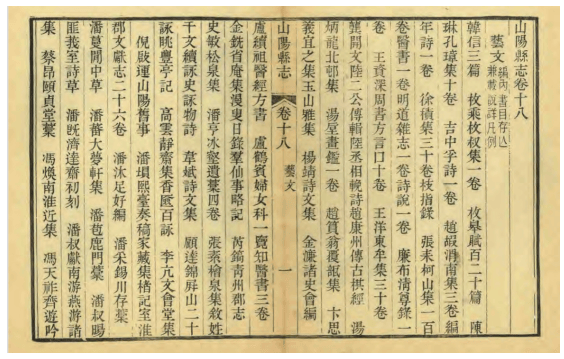 山陽縣志卷十八
藝文
韓信三篇 枚乘枚叔集一卷 枚皋賦百二十篇 陳
琳孔璋集十卷 吉中孚詩一卷 趙嘏渭南集三卷編
年詩一卷 徐積集三十卷枝指錄 張耒柯山集一百
卷醫書一卷明道雜志一卷詩說一卷 廉布清尊錄一
卷 王資深周書方言口十卷 王洋東牟集三十卷
龔開文陸二公傳輯陸丞相輓詩趙康州傳古棋經 湯
炳龍北邨集 湯垕畫鑑一卷 趙質翁覆瓿集 卞思
義宜之集玉山雅集 楊靖詩文集 金濂諸史會編
山陽縣志 卷十八 藝文 一
盧續祖醫經方書 盧鶴賓婦女科一覽知醫書三卷
金銑省庵集漫叟日錄羣仙事略記 芮鎬青州郡志
史敏松泉集 潘亨冰壑遺藁四卷 張素檜泉集敘姓
千文續詠史詠物詩 韋斌詩文集 顧達錦屏山二十
詠眺豐亭記 高雲靜齋集香匳百詠 李亢文會堂集
倪啟運山陽舊事 潘塤熙臺奏稿家藏集楮記室淮
郡文獻志二十六卷 潘沐足好編 潘采錫川存藁
潘蔓閒中草 潘蕃大夢軒集 潘苞鹿門藁 潘叔暘
匪莪室詩草 潘旣濟達齋初刻 潘叔獻南游燕游諸
集 蔡昂頤貞堂藁 馮煥南淮近集 馮天祚齊遊吟